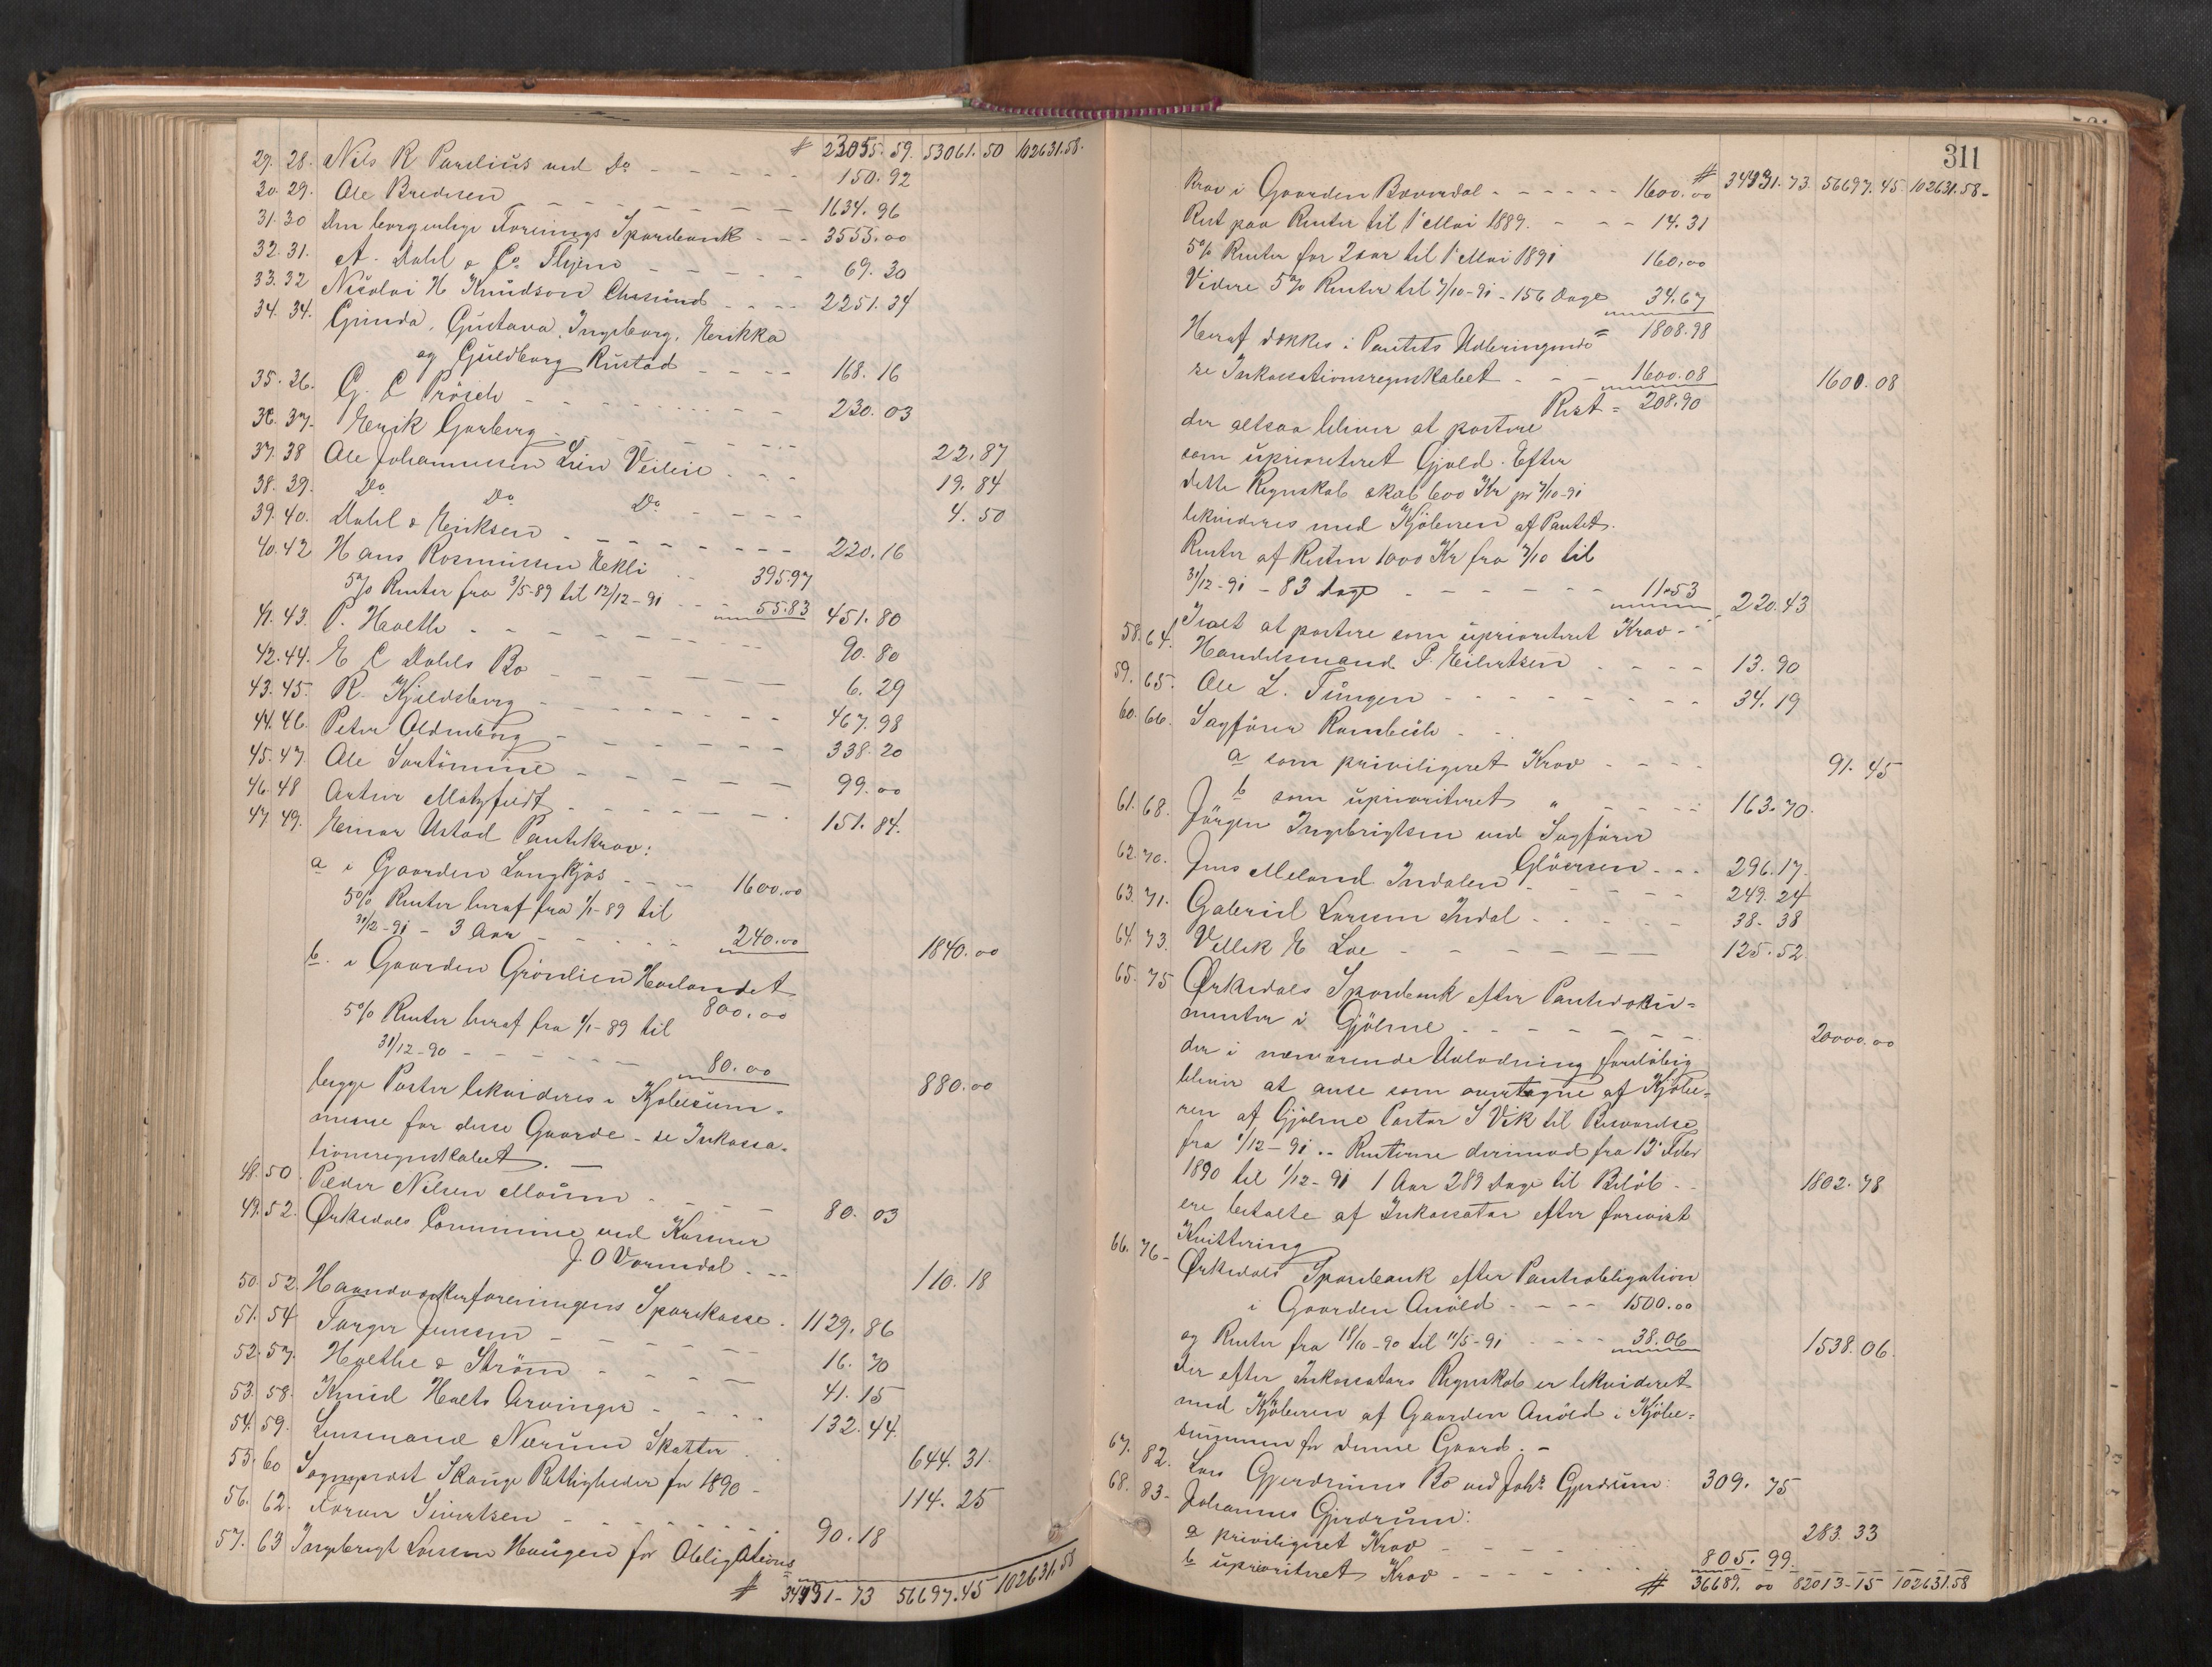 # 23055.59. 53061.50 102631.58.
29. 28. Nils R Parelius ved Do - - - - - 150.92
30. 29. Ole Bredesen - - - - - - - 1634.96
31. 30 Den borgerlige Forenings Sparebank - - - 3553.00
32. 31. A. Dahl & Co. Thjem - - - - - 69.30
33. 32 Nicolai H Knudson Chrsund - - - - 2251.34
34. 34. Gunda, Gustava, Ingeborg, Henrikka
og Guldborg Rustad - - - - 168.16
35. 36. G. C Prösch - - - - - - - - 230.03
36. 37. Henrik Garberg - - - - - -
37. 38 Ole Johannessen Lien - - - 22.87
38. 39. Do Do Do - - - - - 19.84
39. 40. Dahl & Henriksen - - - - - - - - 4.50
40. 42 Hans Rasmussen Eekli - - 395.97 220.16
5% Renter fra 3/5-89 til 12/12-91 - - - 55.83 451.80
41. 43. P. Hoeth - - - - - - - - -
42. 44. E C Dahls Bo - - - - - - 90.80
43. 45. R. Kjeldsberg - - - - - - - 6.29
44. 46. Peter Oldenborg - - - - - - 467.98
45. 47. Ole - - - - - - 338.20
46. 48 Artur Motzfeldt - - - - - - - 99.00
47 49. Einar Ustad Pantekrav: 151.84.
a i Gaarden Langkjös - - - - 1600.00
5% Renter heraf fra 1/1-89 til
31/12-91 - 3 Aar - - - - - - 240.00 1840.00
b. i Gaarden Grönlien Hevlandet
800.00
5% Renter heraf fra 1/1-89 til
31/12-90 - - - - - - - 80.00 880.00
begge Poster likvideres i Kjöbesum-
merne for disse Gaarde - se Inkassa-
tionsregnskabet. -
48. 50. Peder Nilsen Moum - - - - - 80.03
49. 52. Ørkedals Commune ved Kasserer
J. O Vormdal - - - 110.18
50. 52. Haandværkerforeningens Sparekasse - 1129.86
51. 54 Torger Jensen - - - - - - 16.70
52. 57. Hoethe & Ström - - - - - 41.15
53. 58. Knud Holts Arvinger - - - - 132.44.
54. 59. Lensmand Nærum Skatter - - 644.31.
55. 60 Sogneprest Skauge Rettigheder for 1890 - 114.25
56. 62. Sivertsen - - - - - - - 90.18
57. 63 Ingebrigt Larsen Haugen for Obligations
# 34931-73 56697.45 102631.58
311
# 34931.73. 56697.45 102631.58-
Krav i Gaarden Bæverdal - - - - - - 1600.00
Rest paa Renter til 1ste Mai 1889. - - - - 14.31
5% Renter for 2 aar til 1ste Mai 1891 160.00
Videre 5% Renter til 7/10-91 - 156 dage 34.67
= 1808.98
Heraf dækkes i Pantets Udbringende
se Inkassationsregnskabet - - - 1600.08 1600.08
Rest = 208.90
der altsaa bliver at postere
som uprioriteret Gjæld. Efter
dette Regnskab skal 600 Kr pr 7/10-91
likvideres med Kjöberen af Pantet.
Renter af Resten 1000 Kr fra 7/10 til
31/12-91 - 83 dage - - - - - - 11.53 220.43
Ialt at postere som uprioriteret Krav - -
58. 64. Handelsmand P. Eilertsen - - - - 13.90
59. 65. Ole L. Tungen - - - - - - - - - 34.19
60. 66. Sagförer Rambech - -
a som priviligeret Krav - - - - 91.45
b som uprioriteret " - - - - 163.70.
61. 68. Jörgen Ingebrigtsen ved Sagförer
Gløersen - - - 296.17.
62. 70. Jens Meland Indalen - - - - - 249.24
63. 71. Gabriel Larsen Indal - - - - - 38-38
64. 73. E Loe - - - - - - - 125.52.
65. 75 Ørkedals Sparebank efter Pantedoku-
menter i Gjölme - - - - - - - - 20000.00
der i nærværende Udlodning foreløbig
bliver at anse som overtagne af Kjöbe-
ren af Gjölme Pastor S Vik til Besvarelse
fra 1/12-91 .. Renterne derimod fra 13de Febr
1890 til 1/12-91 1 Aar 289 Dage til Beløb - - 1802.78
ere betalte af Inkassator efter forevist
Kvittering
66. 76- Ørkedals Sparebank efter Pantobligation
i Gaarden Anöld - - - - 1500.00
og Renter fra 18/10-90 til 11/5-91 - - - - 38.06 1538.06.
der efter Inkassators Regnskab er likvideret
med Kjöberen af Gaarden Anöld i Kjöbe-
summen for denne Gaard. -
67. 82. Lars Gjerdrums Bo ved Johs Gjerdrum: 309.75
68. 83- Johannes Gjerdrum:
a priviligeret Krav - - - - - - 283.33
b uprioriteret Krav - - - - - - 805.99.
# 36689.00 82013-15 102631.58